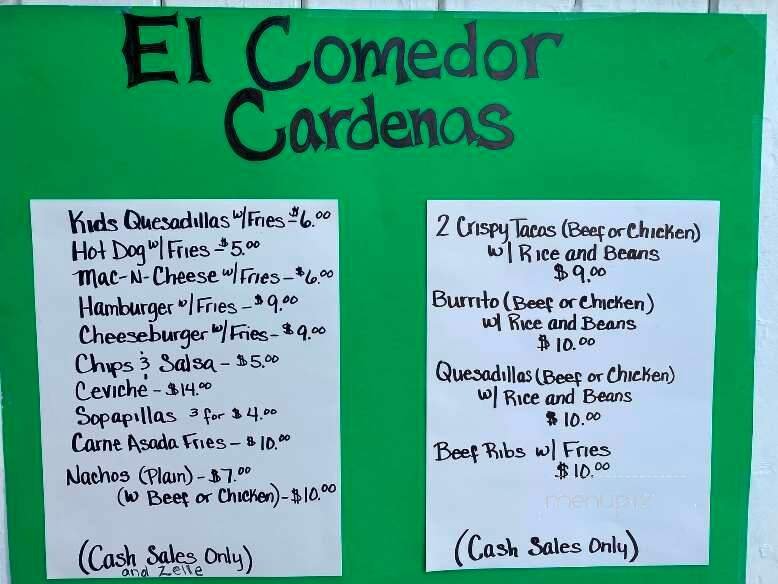 El Comedor
Cardenas
Kids Quesadillas w/Fries - $6.00
Hot Dog w/Fries - $5.00
Mac-N-Cheese w/Fries - $6.00
Hamburger w/Fries - $9.00
Cheeseburger w/Fries - $9.00
Chips & Salsa - $5.00
Ceviche - $14.00
Sopapillas 3 for $4.00
Carne Asada Fries - $10.00
Nachos (Plain) - $7.00
(w Beef or Chicken) - $10.00
(Cash Sales Only)
and Zelle
2 Crispy Tacos (Beef or Chicken)
w/ Rice and Beans
$9.00
Burrito (Beef or Chicken)
w/ Rice and Beans
$10.00
Quesadillas (Beef or Chicken)
w/ Rice and Beans
$10.00
Beef Ribs w/ Fries
$10.00
menupix
(Cash Sales Only)